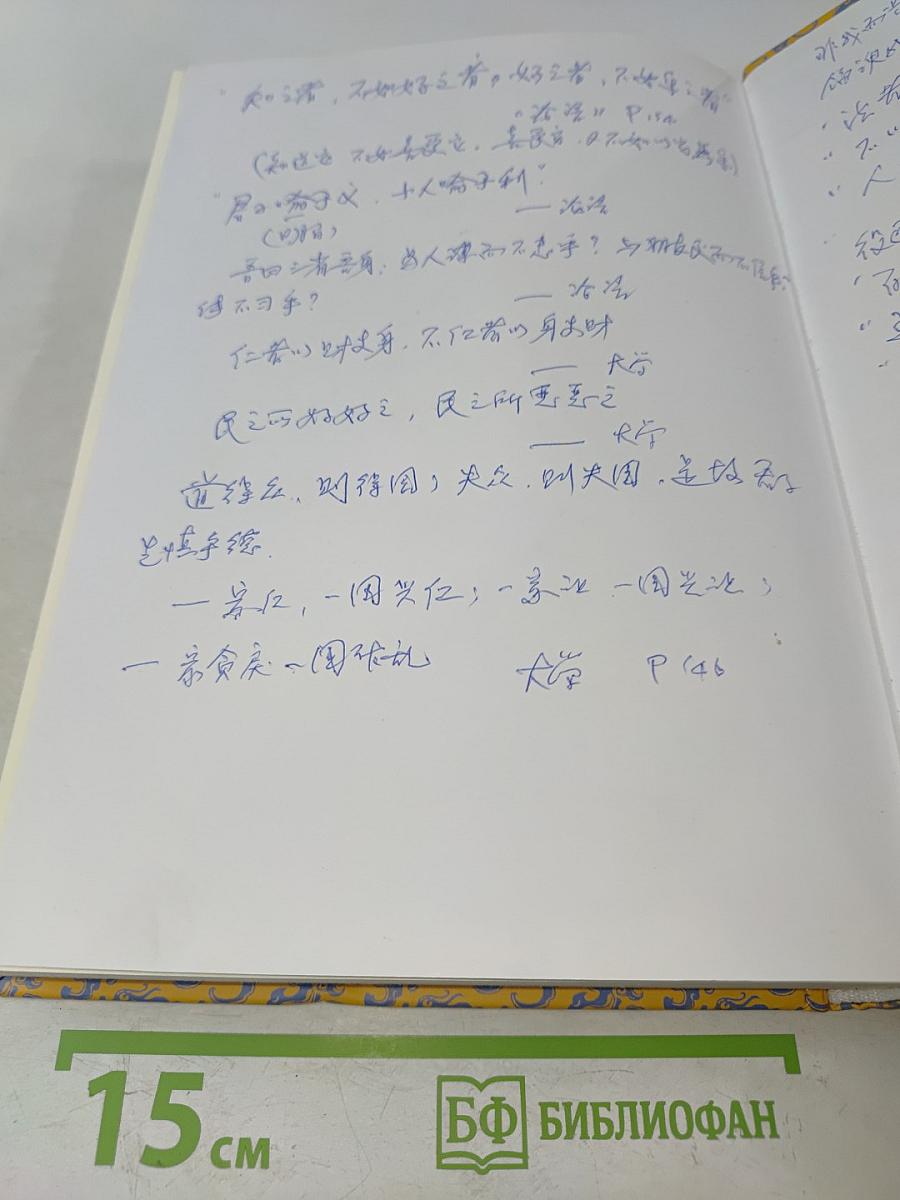 "知之者，不如好之者。好之者，不如乐之者"
《论语》 P154
(知道它 不如喜爱它，喜爱它，又不如以它为乐)
"君子喻于义，小人喻于利"。
(明白)
—— 论语
吾日三省吾身，为人谋而不忠乎？与朋友交而不信乎？
传不习乎？
—— 论语
仁者以财发身，不仁者以身发财
—— 大学
民之所好好之，民之所恶恶之
—— 大学
道得众，则得国；失众，则失国。是故君子
先慎乎德.
一家仁，一国兴仁；一家让 一国兴让；
一家贪戾、一国作乱
大学 P146
15 см
БФ БИБЛИОФАН